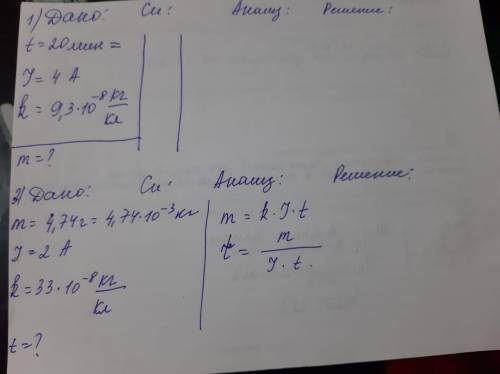 1) Дано: Си: Анализ: Решение:
t = 20 мин =
J = 4 А
k = 9,3·10⁻⁸ кг/кл
m = ?
2) Дано: Си: Анализ: Решение:
m = 4,74г = 4,74·10⁻³ кг
J = 2 А
k = 33·10⁻⁸ кг/кл
t = ?
m = k·J·t
t = m/J·t.